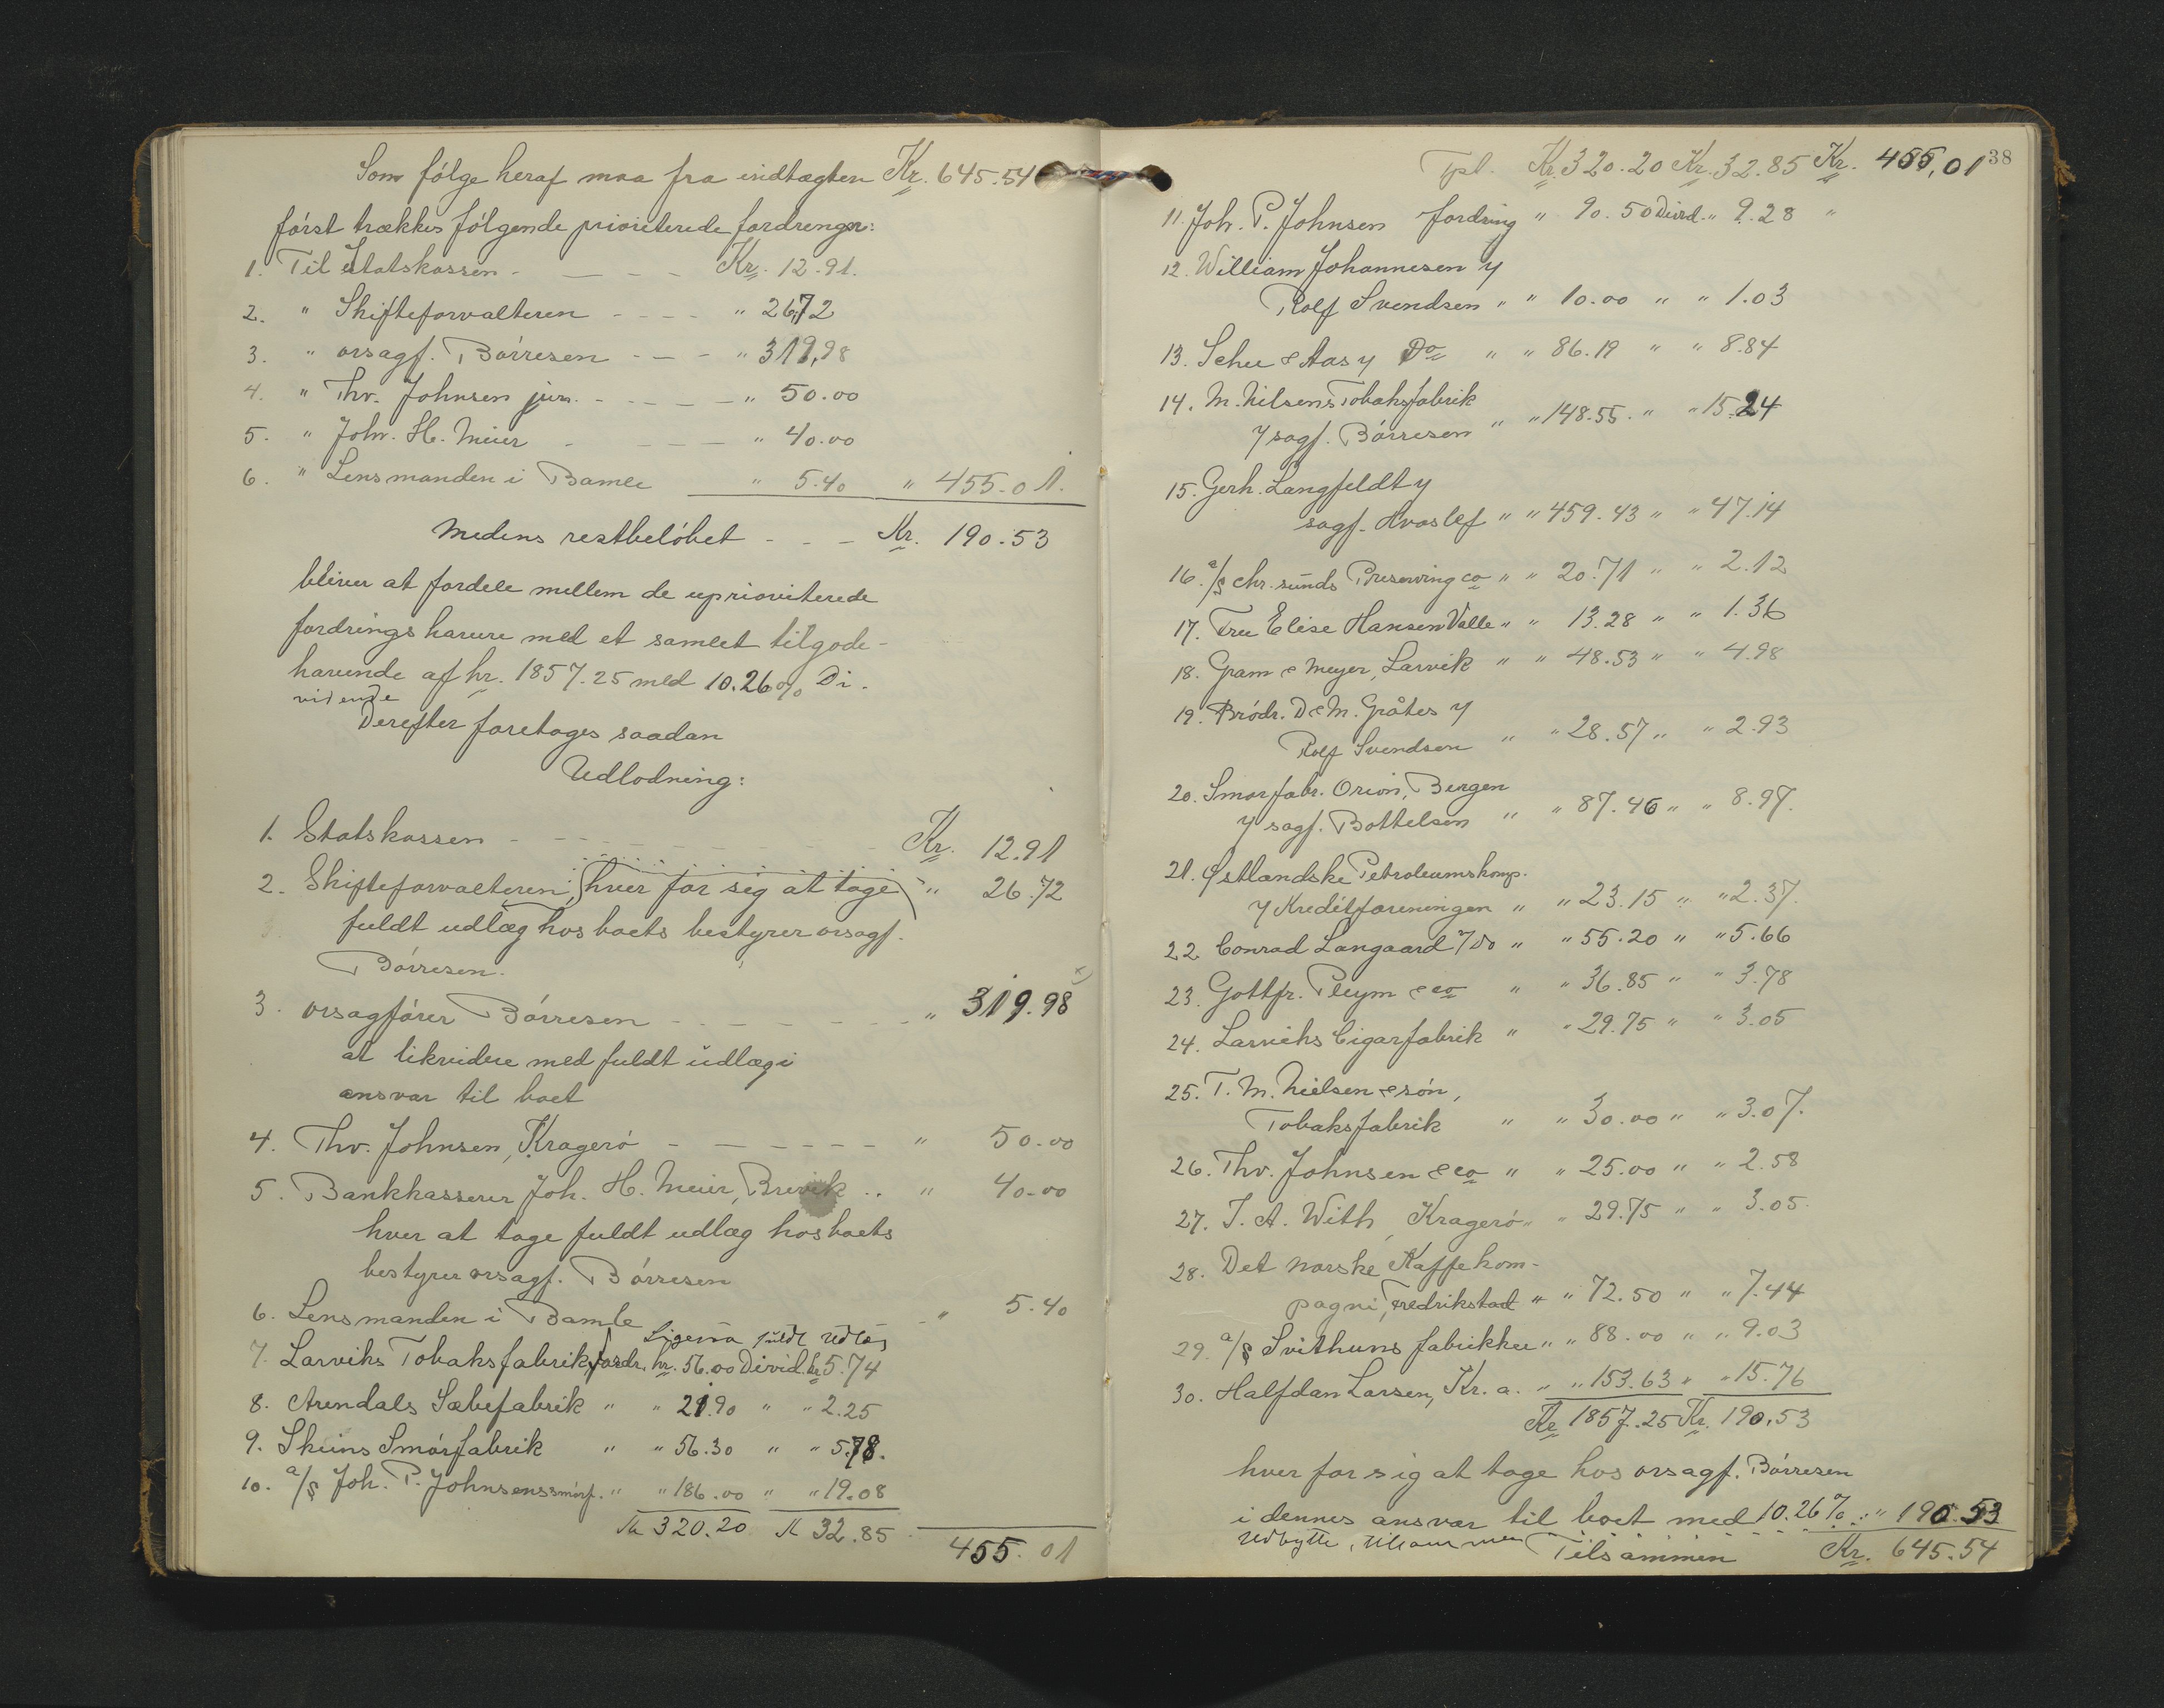 Som følge heraf maa fra indtægten Kr. 645.54
først trækkes følgende prioriterede fordringer:
1. Til Statskassen - - - - Kr. 12.91.
2. " Skifteforvalteren - - - - " 26,72
3. " orsagf. Børresen - - - " 319,98
4. " Thv. Johnsen jun. - - - - - " 50.00
5. " Joh. H. Meier - - - - " 40.00
6. " Lensmanden i Bamle " 5.40 " 455.01.
Medens restbeløbet - - - Kr. 190.53
bliver at fordele mellem de uprioriterede
fordringshavere med et samlet tilgode-
havende af kr. 1857.25 med 10.26% Di-
vidende
Derefter foretages saadan
Udlodning:
1. Statskassen - - - Kr. 12.91
2. Skifteforvalteren, (hver for sig at tage) " 26.72
fuldt udlæg hos boets bestyrer orsagf.
Børresen.
3. orsagfører Børresen - - - - - - " 319.98 x)
at likvidere med fuldt udlæg i
ansvar til boet
4. Thv. Johnsen, Kragerø - - - - - - " 50.00
5. Bankkasserer Joh. H. Meier, Brevik .. " 40.00
hver at tage fuldt udlæg hos boets
bestyrer orsagf. Børresen
6. Lensmanden i Bamle - " 5.40
Ligesaa fuldt udlæg
7. Larviks Tobaksfabrik, fordr. kr. 56.00 Divid. kr 5.74
8. Arendals Sæbefabrik " " 21.90 " " 2.25
9. Skiens Smørfabrik " " 56.30 " " 5.78.
10. a/s Joh. P. Johnsens smørf. " " 186.00 " " 19.08
Kr 320.20 Kr 32.85
455.01
38
Tpt. Kr. 320.20 Kr. 32.85 Kr. 455,01
11. Joh. P. Johnsen fordring " 90.50 Divid. " 9.28 "
12. William Johannesen v/
Rolf Svendsen " " 10.00 " " 1.03
13. Schee & Aas v/ Do " " 86.19 " " 8.84
14. M. Nilsens Tobaksfabrik
v/ sagf. Børresen " " 148.55. " " 15.24
15. Gerh. Langfeldt v/
sagf. Hvoslef " " 459.43 " " 47.14
16. a/s Chr.sunds Preserving co " " 20.71 " " 2.12
17. Fru Elise Hansen Valle " " 13.28 " " 1.36
18. Gram & Meyer, Larvik " " 48.53 " " 4.98
19. Brødr. D & M. Gråtes v/
Rolf Svendsen " " 28.57 " " 2.93
20. Smørfabr. Orion, Bergen
v/ sagf. Bottelsen " " 87.46 " " 8.97.
21. Østlandske Petroleumskomp.
v/ Kreditforeningen " " 23.15 " " 2.37.
22. Conrad Langaard v/ Do " " 55.20 " " 5.66
23. Gottfr. Pleym & co " " 36.85 " " 3.78
24. Larviks Cigarfabrik " " 29.75 " " 3.05
25. T. M. Nielsen & søn,
Tobaksfabrik " " 30.00 " " 3.07.
26. Thv. Johnsen & co " " 25.00 " " 2.58
27. J. A. With, Kragerø " " 29.75 " " 3.05.
28. Det norske Kaffekom-
pagni, Fredrikstad " " 72.50 " " 7.44
29. a/s Svithuns fabrikker " " 88.00 " " 9.03
30. Halfdan Larsen, Kr.a. " " 153.63 " " 15.76
Kr 1857.25 Kr. 190,53
hver for sig at tage hos orsagf. Børresen
i dennes ansvar til boet med 10.26% .: " 190.53
udbytte, tilsammen Tilsammen Kr. 645.54